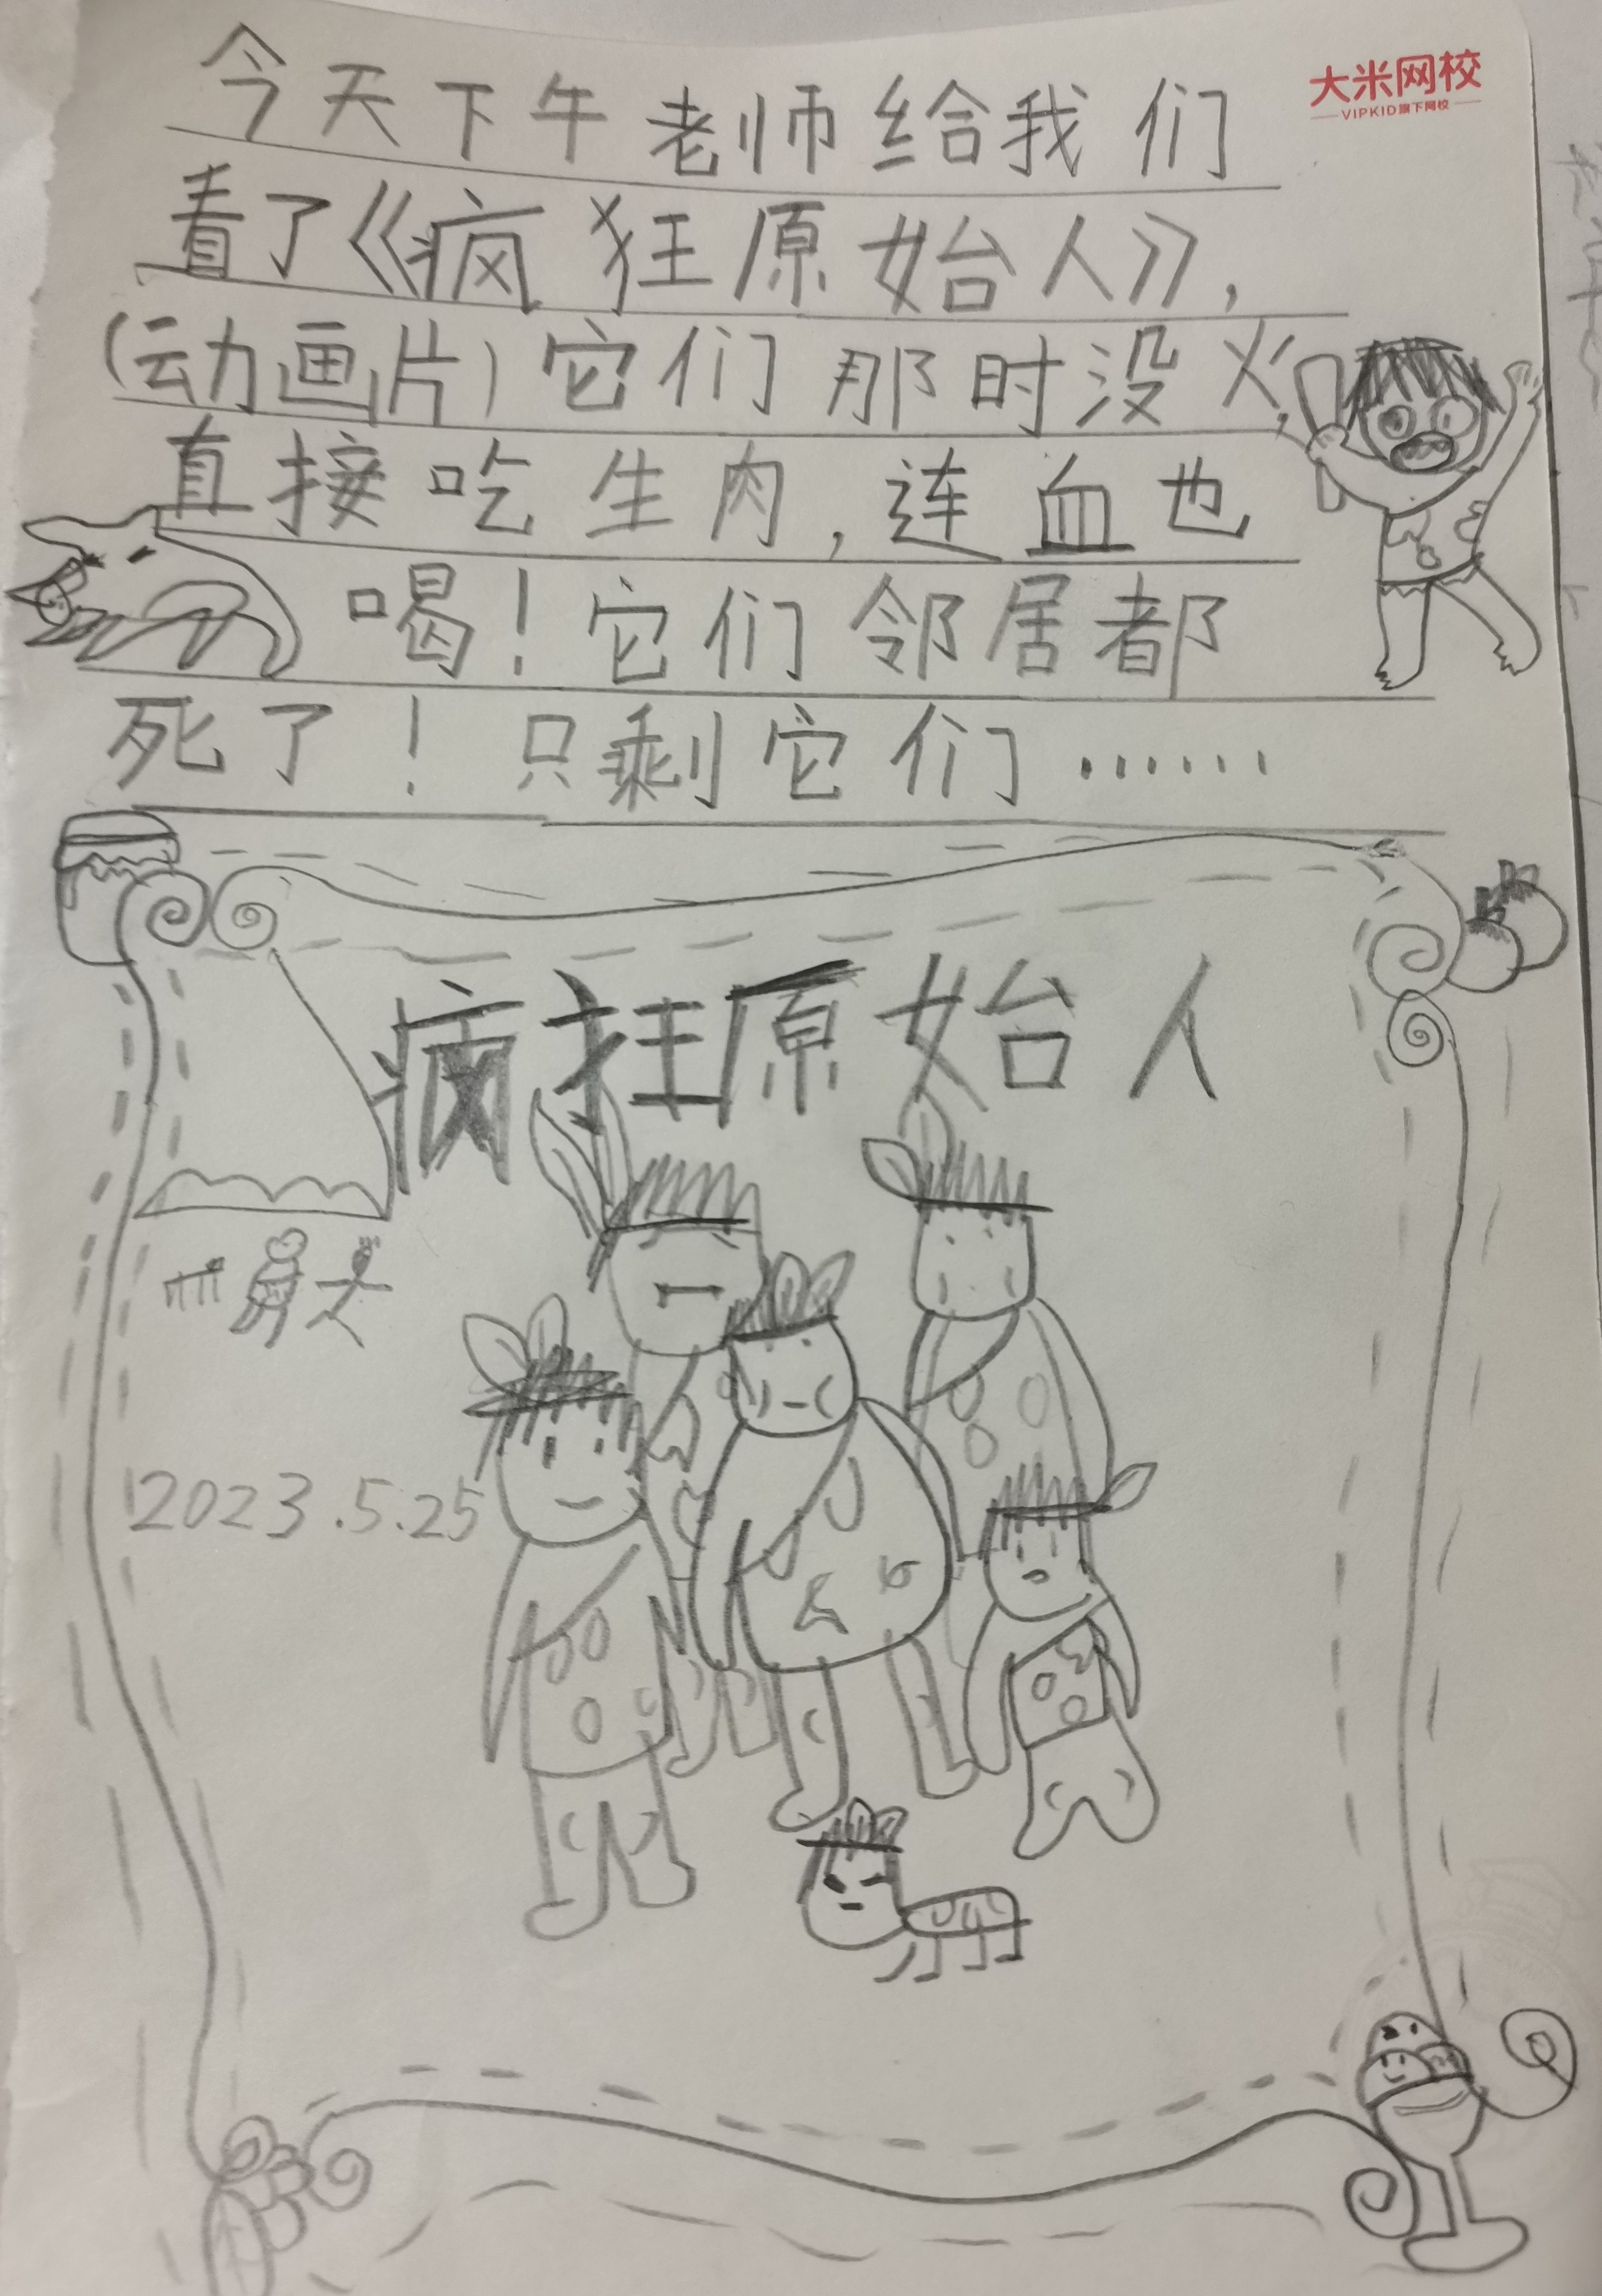 今天下午老师给我们
大米网校
VIPKID旗下网校
看了《疯狂原始人》,
(动画片)它们那时没火,
直接吃生肉,连血也
喝!它们邻居都
死了!只剩它们……
疯狂原始人
2023.5.25